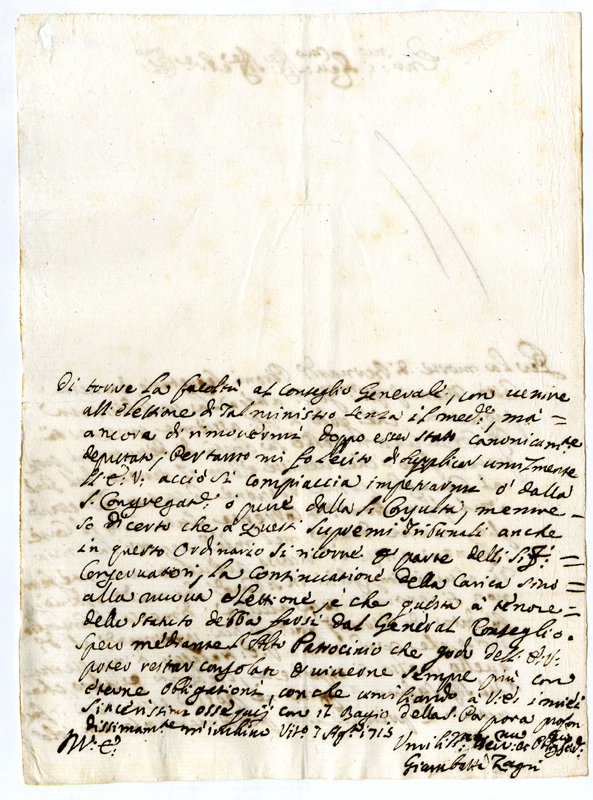 di torre la facoltà al Conseglio Generale, con venire
all'elettione di tal ministro senza il med.º, mà =
ancora di rimovermi doppo esser stato canonicam.te
deputato; Pertanto mi fò lecito di supplicar umilmente
V. E. V. acciò si compiaccia impetrarmi ò dalla
S. Congregat.e ò pure dalla S. Consulta, mentre =
sò di certo che a questi supremi Tribunali anche
in questo Ordinario si ricorre p parte delli SS.ri =
Conservatori, la continuatione della Carica sino =
alla nuova elettione, e che questa à tenore =
dello statuto debba farsi dal General Conseglio.
Spero mediante l'alto Patrocinio che godo dell' E. V.
poter restar consolato e viverne sempre più con
eterne obligationi, con che umiliando à V. E. i miei
sincerissimi ossequij con il Bagio della S. Porpora profon
dissimam.te m'inchino Vit.o 7 Ag.to 1715
Umiliss.mo
Giambatta Zagri